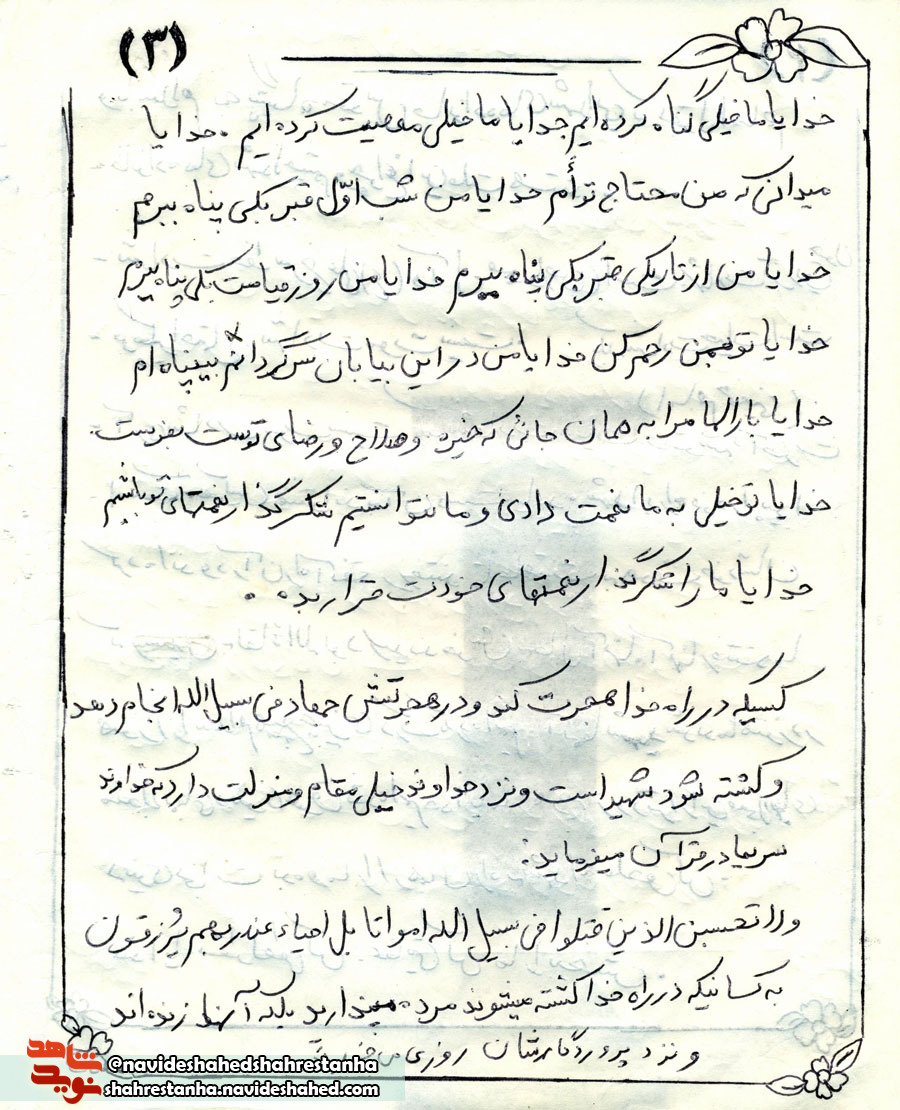 (۳)
خدایا ما خیلی گناه کرده ایم خدایا ما خیلی معصیت کرده ایم . خدایا
میدانی که من محتاج توأم خدایا من شب اوّل قبر بکی پناه ببرم
خدایا من از تاریکی قبر بکی پناه ببرم خدایا من روز قیامت بکی پناه ببرم
خدایا تو بمن رحم کن خدایا من در این بیابان سرگردانم بی پناه ام
خدایا بارالها مرا به همان جائی که خیر و صلاح و رضای توست بفرست.
خدایا تو خیلی به ما نعمت دادی و ما نتوانستیم شکر گذار نعمتهای تو باشیم
خدایا ما را شکر گذار نعمتهای خودت قرار بده .
کسیکه در راه خدا هجرت کند و در هجرتش جهاد فی سبیل الله انجام دهد
و کشته شود شهید است و نزد خداوند خیلی مقام و منزلت دارد که خداوند
در قرآن میفرماید:
ولا تحسبن الذین قتلوا فی سبیل الله امواتا بل احیاء عند ربهم یُرزقون
به کسانیکه در راه خدا کشته میشوند مرده مپندارید بلکه آنها زنده اند
و نزد پروردگارشان روزی می
شاهد
نوید
@navideshahedshahrestanha
shahrestanha.navideshahed.com